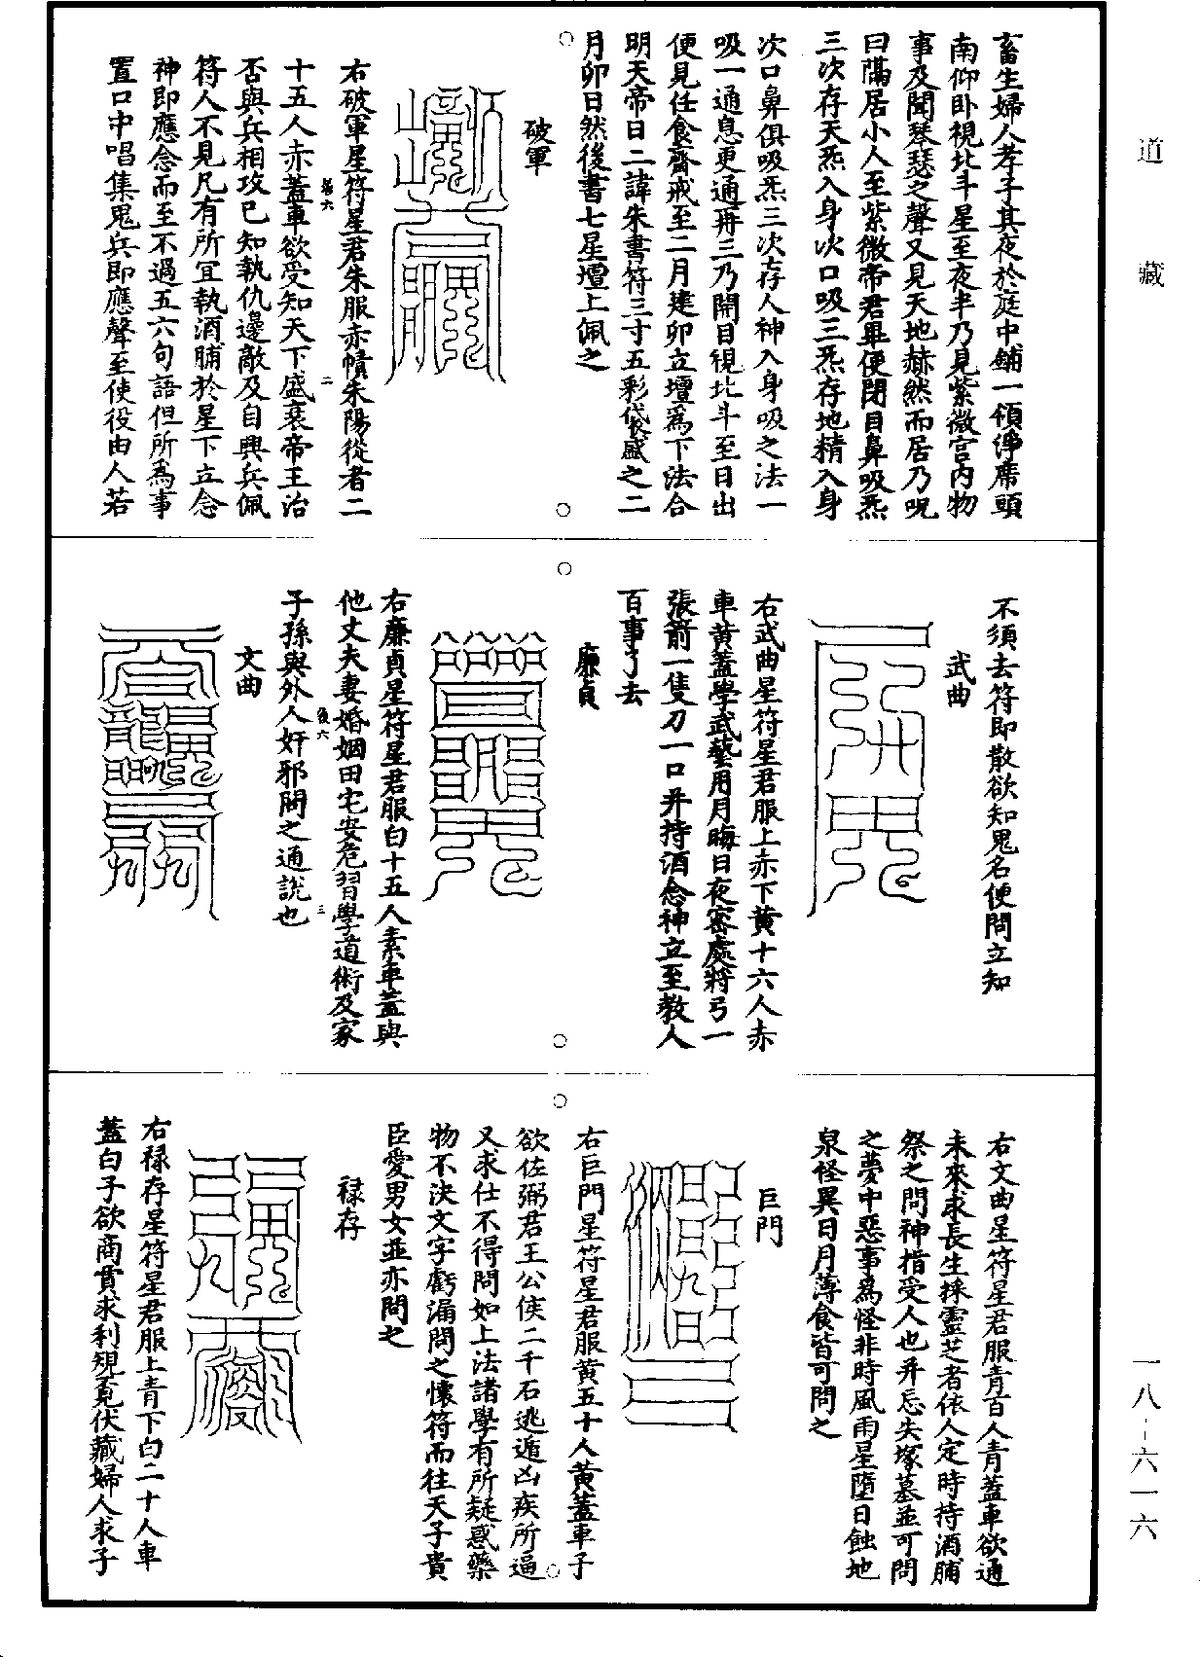 道藏
畜生婦人孝子其夜於庭中鋪一領淨席頭
南仰臥視北斗星至夜半乃見紫微宮内物
事及聞琴瑟之聲又見天地赫然而居乃呪
曰隔居小人至紫微帝君畢便閉目鼻吸炁
三次存天炁入身次口吸三炁存地精入身
次口鼻俱吸炁三次存人神入身吸之法一
吸一通息更通再三乃開目視北斗至日出
便見任食齋戒至二月建卯立壇為下法合
明天帝日二諱朱書符三寸五彩袋盛之二
月卯日然後書七星壇上佩之
破軍
右破軍星符星君朱服赤幘朱陽從者二
十五人赤蓋車欲受知天下盛衰帝王治
否與兵相攻已知執仇邊敵及自興兵佩
符人不見凡有所宜執酒脯於星下立念
神即應念而至不過五六句語但所為事
置口中唱集鬼兵即應聲至使役由人若
不須去符即散欲知鬼名便問立知
武曲
右武曲星符星君服上赤下黃十六人赤
車黃蓋學武藝用月晦日夜密處將弓一
張箭一隻刀一口并持酒念神立至教人
百事了去
廉貞
右廉貞星符星君服白十五人素車蓋與
他丈夫妻婚姻田宅安危習學道術及家
子孫與外人奸邪問之通說也
文曲
右文曲星符星君服青百人青蓋車欲通
未來求長生採靈芝者依人定時持酒脯
祭之問神指受人也并忘失塚墓並可問
之夢中惡事為怪非時風雨星墮日蝕地
泉怪異日月薄食皆可問之
巨門
右巨門星符星君服黃五十人黃蓋車子
欲佐弼君王公侯二千石逃遁凶疾所逼
又求仕不得問如上法諸學有所疑惑藥
物不決文字虧漏問之懷符而往天子貴
臣愛男女並亦問之
祿存
右祿存星符星君服上青下白二十人車
蓋白子欲商賈求利覓伏藏婦人求子
一八-六一六